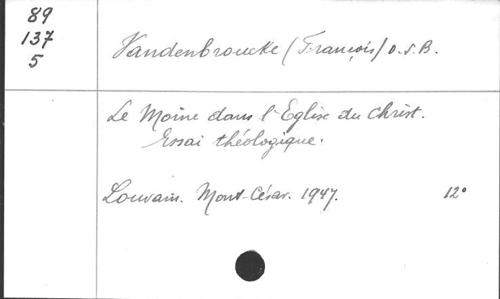 89
137
5
Vandenbroucke (François) O.S.B.
Le Moine dans l'Eglise du Christ.
Essai théologique.
Louvain. Mont-César. 1947. 12°